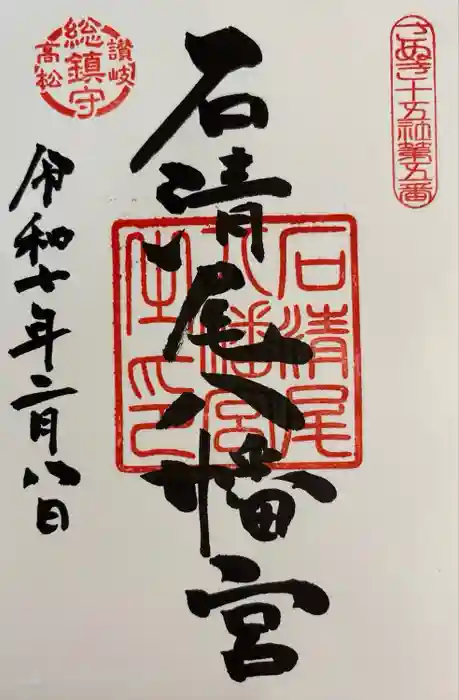 さぬき十五社第五番
讃岐
総鎮守
高松
石清尾八幡宮
石清尾
八幡宮
令和七年二月八日